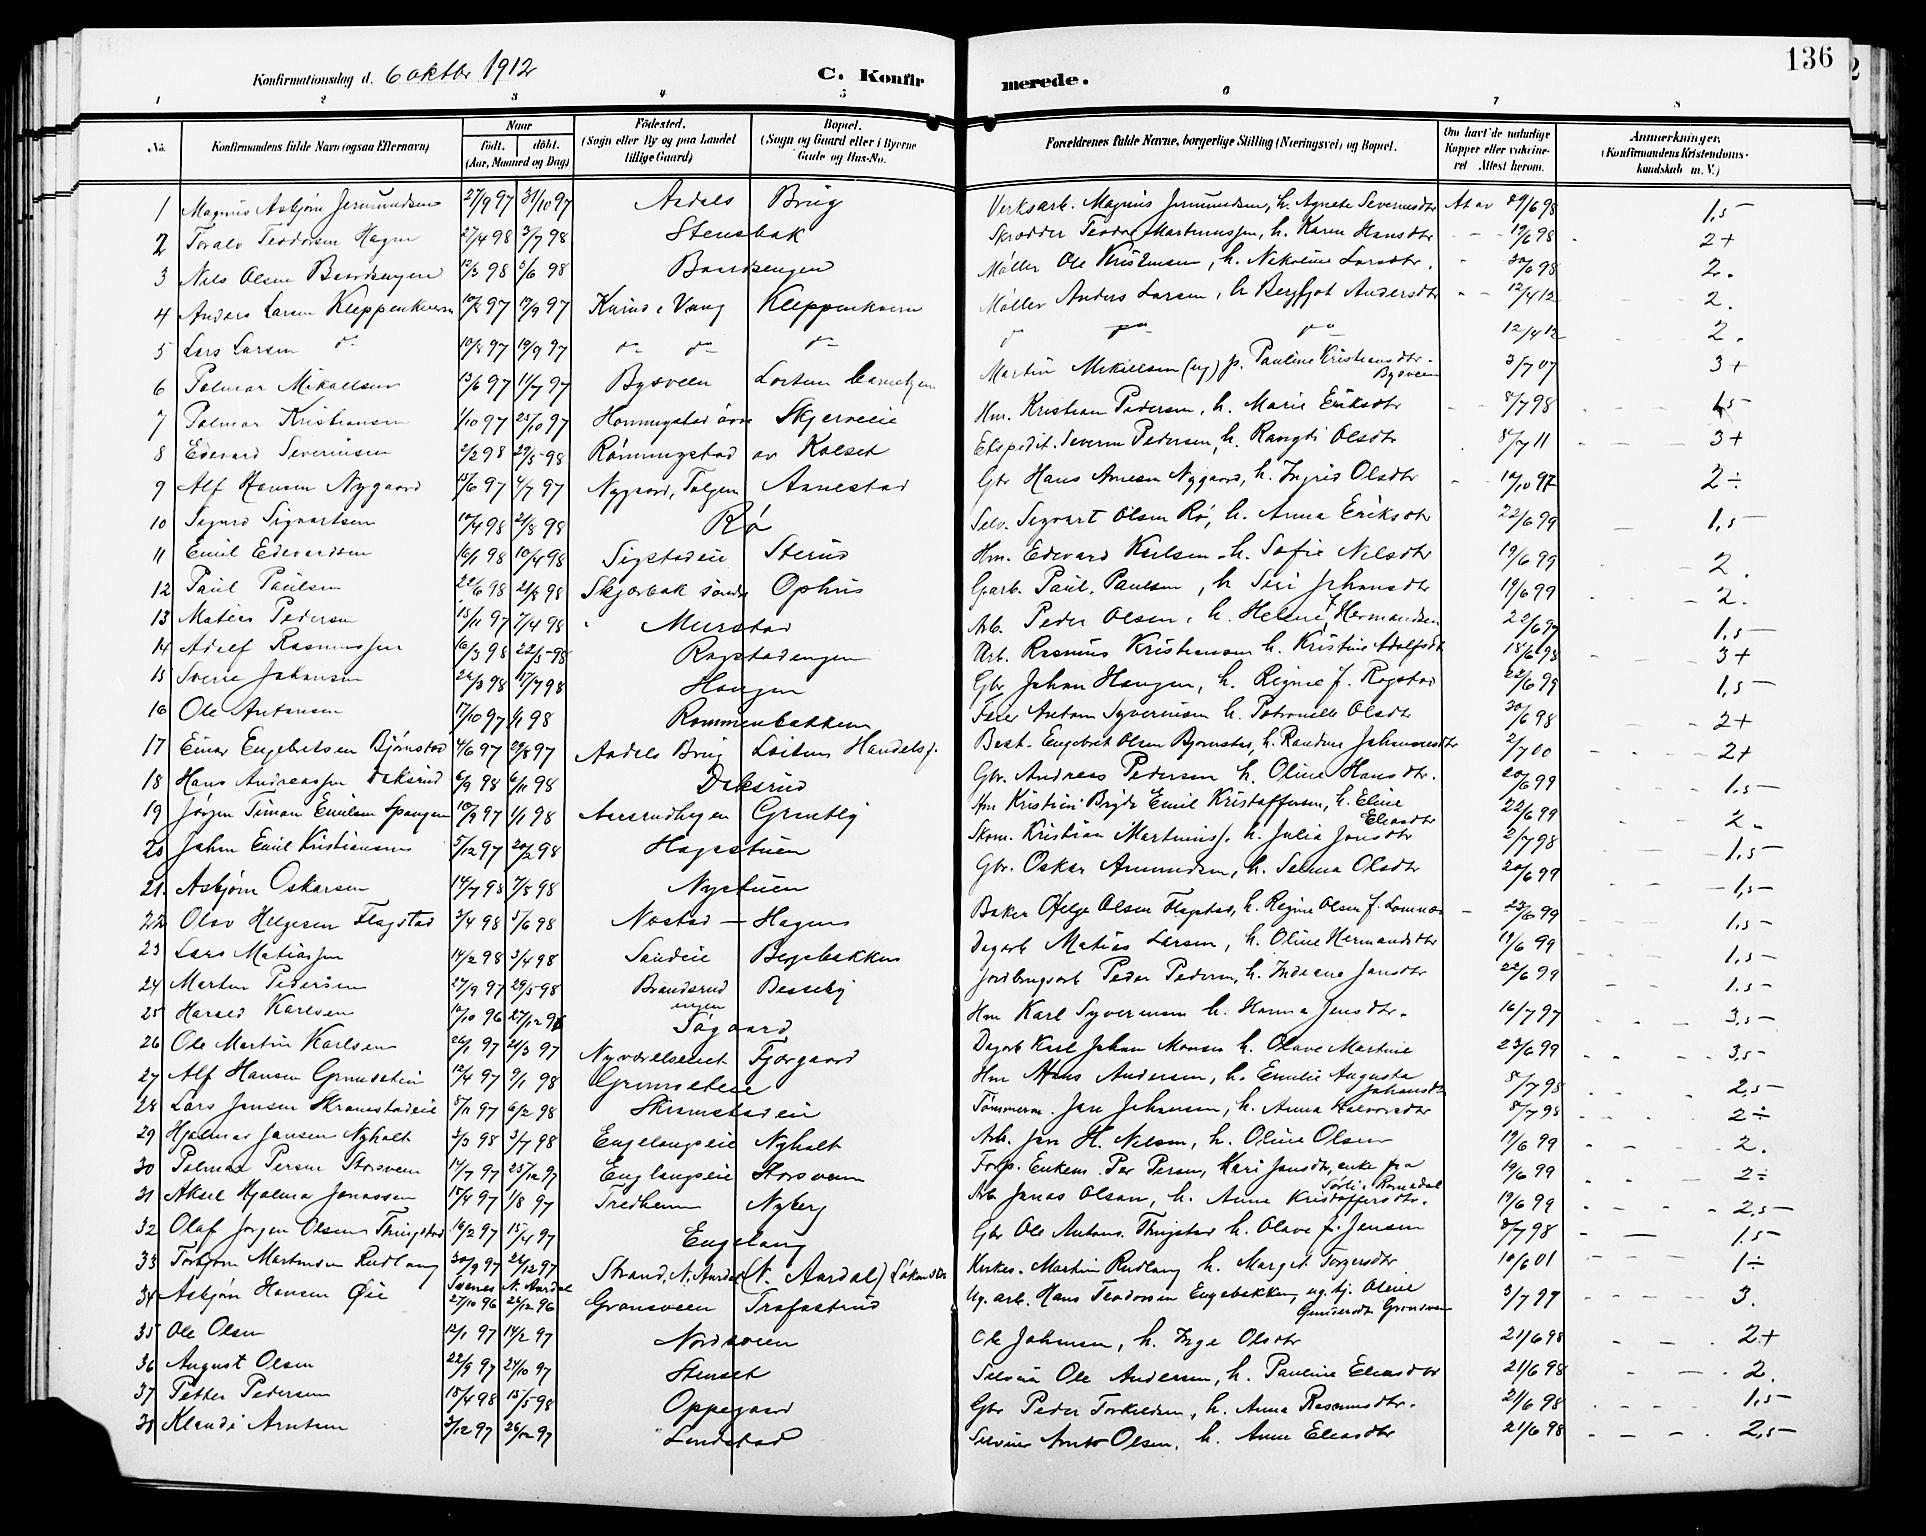 136
Konfirmationsdag d. 6 oktbr 1912 C. Konfir merede.
1 2 3 4 5 6 7 8
No. Konfirmandens fulde Navn (ogsaa Efternavn) Naar født. døbt. (Aar, Maaned og Dag) Fødested. (Sogn eller By og paa Landet tillige Gaard) Bopæl. (Sogn og Gaard eller i Byerne Gade og Hus-No. Forældrenes fulde Navne, borgerlige Stilling (Næringsvei) og Bopæl. Om havt de naturlige Kopper eller vaccineret Attest herom. Anmærkninger. (Konfirmandens Kristendomskundskab m. V.)
1 Magnus Asbjørn Jermundsen 27/9 97 31/10 97 Aadals Brug Verksarb. Magnus Jermundsen, h. Agnete Severinsdtr At av 29/6 98 1,5
2 Toralv Teodorsen Hagen 27/4 98 3/7 98 Stensbak Skrædder Teodor Martinussen, h. Karen Hansdtr 19/6 98 2+
3 Nils Olsen Baardsengen 12/3 98 5/6 98 Baardsengen Møller Ole Kristensen, h. Nikoline Larsdtr. 30/6 98 2.
4 Anders Larsen Kleppenkvern 10/8 97 19/9 97 Kurud i Vang Kleppenkvern Møller Anders Larsen, h. Bergljot Andersdtr 12/4 12 2.
5 Lars Larsen do 10/8 97 19/9 97 do do do do do do 12/4 12 2.
6 Palmar Mikaelsen 13/6 97 11/7 97 Bysveen Martin Mikaelsen (ug) p. Pauline Kristiansdtr. Bysveen 3/7 07 3+
7 Palmar Kristiansen 1/10 97 25/10 97 Hommerstad øvre Skjerveeie Hm. Kristian Pedersen, h. Marie Eriksdtr 8/7 98 1,5
8 Edevard Severinsen 2/2 98 29/5 98 Rømmugstad av Kolset Ekspedit. Severin Pedersen, h. Rangdi Olsdtr 8/7 11 3+
9 Alf Hansen Nygaard 13/6 97 4/7 97 Nygaard, Tolgen Aanestad Gbr Hans Arnesen Nygaard, h. Ingrid Olsdtr 10/10 97 2÷
10 Sigurd Sigvartsen 10/4 98 21/8 98 Rø Selv. Sigvart Olsen Rø, h. Anna Eriksdtr 22/6 99 1,5
11 Emil Edevardsen 16/1 98 10/4 98 Sigstadeie Sterud Hm. Edevard Karlsen h. Sofie Nilsdtr 19/6 99 2
12 Paul Paulsen 22/6 98 21/8 98 Skjærbak søndre Ophus Garb. Paul Paulsen, h Siri Johansdtr 19/6 99 2.
13 Matias Pedersen 15/11 97 7/4 98 Murstad Arb. Peder Olsen, h. Helene f. Hermandsen 22/6 97 1,5
14 Adolf Rasmussen 16/3 98 22/5 98 Rogstadengen Arb. Rasmus Kristiansen h. Kristine Adolfsdtr 18/6 98 3+
15 Sverre Johansen 24/3 98 17/7 98 Haugen Gbr Johan Haugen, h. Regine f. Rogstad 22/6 99 1,5
16 Ole Antonsen 17/10 97 1/1 98 Rommenbakken Anton Syvertsen h. Petronelle Olsdtr 30/6 98 2+
17 Einar Engebretsen Bjørnstad 4/6 97 29/8 97 Aadals Brug Løitens Handelsf. Best. Engebret Olsen Bjørnstad, h. Randine Johannesdtr 2/7 00 2+
18 Hans Andreassen Daksrud 6/9 98 6/11 98 Daksrud Gbr. Andreas Pedersen h. Oline Hansdtr. 20/6 99 1,5
19 Jørgen Timan Emilsen Spangen 10/9 97 1/1 98 Aasrudhagen Grantlig Hm Kristian Bryde Emil Kristoffersen, h. Eline Eliasdtr 22/6 99 2.
20 Johan Emil Kristiansen 5/12 97 20/2 98 Hagestuen Skom. Kristian Martinus. h. Julia Jonsdtr 2/7 98 1,5
21. Asbjørn Oskarsen 14/7 98 7/8 98 Nystuen Gbr. Oskar Amundsen, h. Selma Olsdtr 20/6 99 1,5
22 Olav Helgesen Flagstad 3/4 98 5/6 98 Næstad Hagens Baker Helge Olsen Flagstad, h. Regine Olsen f. Lomnæs 23/6 99 1,5
23 Lars Matiassen 14/2 98 3/4 98 Sandeie Begebakken Dagarb Matias Larsen, h. Oline Hermandsdtr 19/6 99 1,5
24 Martin Pedersen 27/9 97 29/5 98 Brandsrud engen Besseby Jordbrugsarb Peder Pedersen, h. Indiane Jensdtr 22/6 99 1,5
25 Harald Karlsen 10/10 96 27/12 96 Søgaard Hm Karl Syversen h. Hanna Jensdtr. 16/7 97 3,5
26 Ole Martin Karlsen 26/1 97 21/3 97 Fjærgaard Dagarb Karl Johan Monsen h. Olave Martine 23/6 99 3,5
27 Alf Hansen Grundstein 12/4 97 9/1 98 Hm Hans Andersen, h. Emilie Augusta Johansdtr 8/7 98 2,5
28 Lars Jensen Skramstadeie 8/11 97 6/2 98 Skramstadeie Tømmerm. Jan Johansen, h. Anna Halvorsdtr 8/7 98 2÷
29 Hjalmar Jansen Nyholt 3/3 98 3/7 98 Engelaugseie Nyholt Arb. Jan H. Nilsen, h. Oline Olsen 19/6 99 2.
30 Palmar Persen Storsveen 14/7 97 25/12 97 Englaugseie Storsveen Forp. Enkem. Per Persen, Kari Jansdtr, enke fra Romedal 19/6 99 2÷
31 Aksel Hjalmar Jonassen 15/4 97 1/8 97 Tredheim Nyberg Arb Jonas Olsen, h. Anne Kristoffersdtr. 19/6 99 2,5
32 Olaf Jørgen Olsen Thingstad 16/2 97 15/4 97 Engelaug Gbr Ole Antons. Thingstad h. Olave f. Jensen 8/7 98 1,5
33 Torbjørn Martinsen Rudlang 30/9 97 26/12 97 Strand, N. Aurdal (N. Aurdal) Kirkes. Martin Rudlang h. Margit Torgersdtr 10/6 01 1÷
34 Asbjørn Hansen Øie N. Aurdal 27/10 96 26/12 96 Gransveen Trafastrud Ug. arb. Hans Teodorsen Engebakken, ug. tj. Oline Gundersdtr Gransveen 3/7 97 3.
35 Ole Olsen 12/1 97 14/2 97 Nordsveen Ole Johnsen, h. Inge Olsdtr 21/6 98 2+
36 August Olsen 22/9 97 24/10 97 Stenset Selveier Ole Andersen, h. Pauline Eliasdtr 21/6 98 2.
37 Petter Pedersen 15/4 98 15/5 98 Oppegaard Gbr Peder Torkildsen, h. Anna Rasmusdtr. 21/6 98 1,5
38 Klaudi Arntsen 3/12 97 26/12 97 Lundstad Selveier Arnt Olsen. h. Anne Eliasdtr 21/6 98 2,5